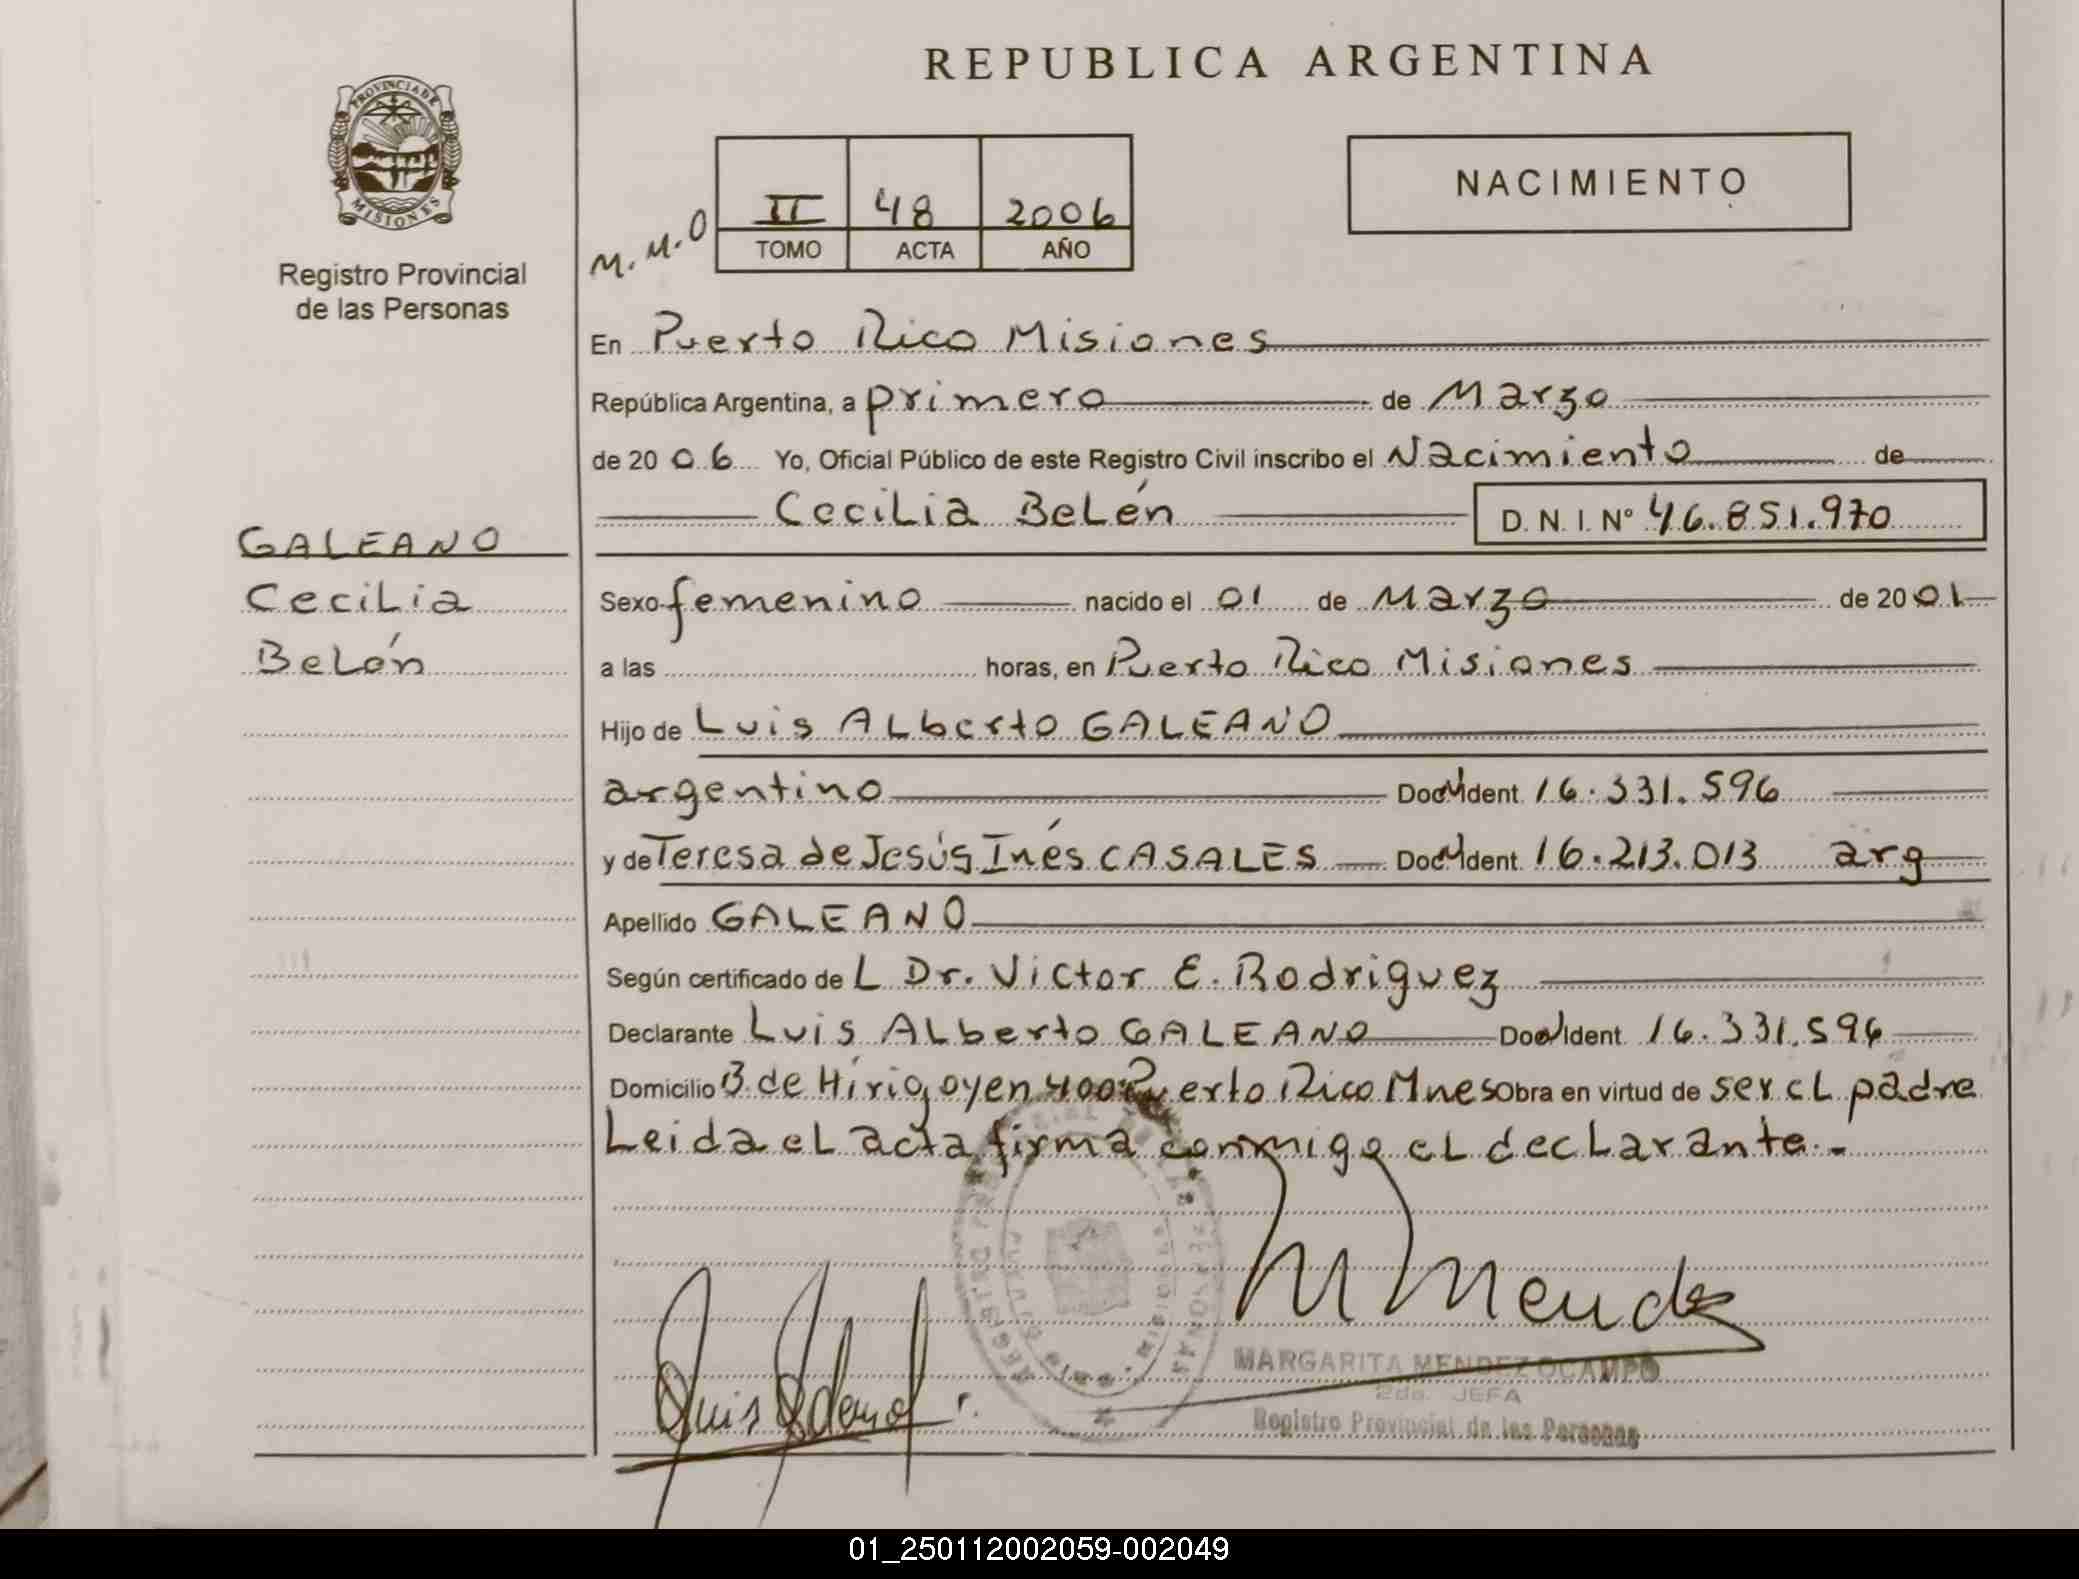 REPUBLICA ARGENTINA
PROVINCIA DE MISIONES
Registro Provincial
de las Personas
M.M.O
II 48 2006
TOMO ACTA AÑO
NACIMIENTO
En Puerto Rico Misiones
República Argentina, a primero de Marzo
de 2006 Yo, Oficial Público de este Registro Civil inscribo el Nacimiento de
Cecilia Belén D. N. I. Nº 46.851.970
GALEANO
Cecilia
Belén
Sexo femenino nacido el 01 de Marzo de 2001
a las horas, en Puerto Rico Misiones
Hijo de Luis Alberto GALEANO
argentino Doc. Ident. 16.331.596
y de Teresa de Jesús Inés CASALES Doc. Ident. 16.213.013 arg
Apellido GALEANO
Según certificado de L Dr. Victor E. Rodriguez
Declarante Luis Alberto GALEANO Doc. Ident. 16.331.596
Domicilio B de Hirigoyen 400 Puerto Rico Mnes Obra en virtud de ser el padre
Leida el acta firma conmigo el declarante.-
M Mendez
MARGARITA MENDEZ OCAMPO
2da. JEFA
Registro Provincial de las Personas
01_250112002059-002049